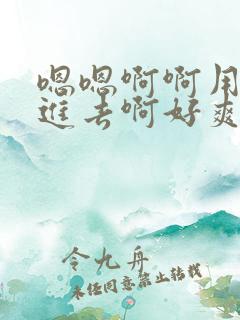 嗯嗯啊啊用
进去啊好爽
令九舟
未经同意禁止转载